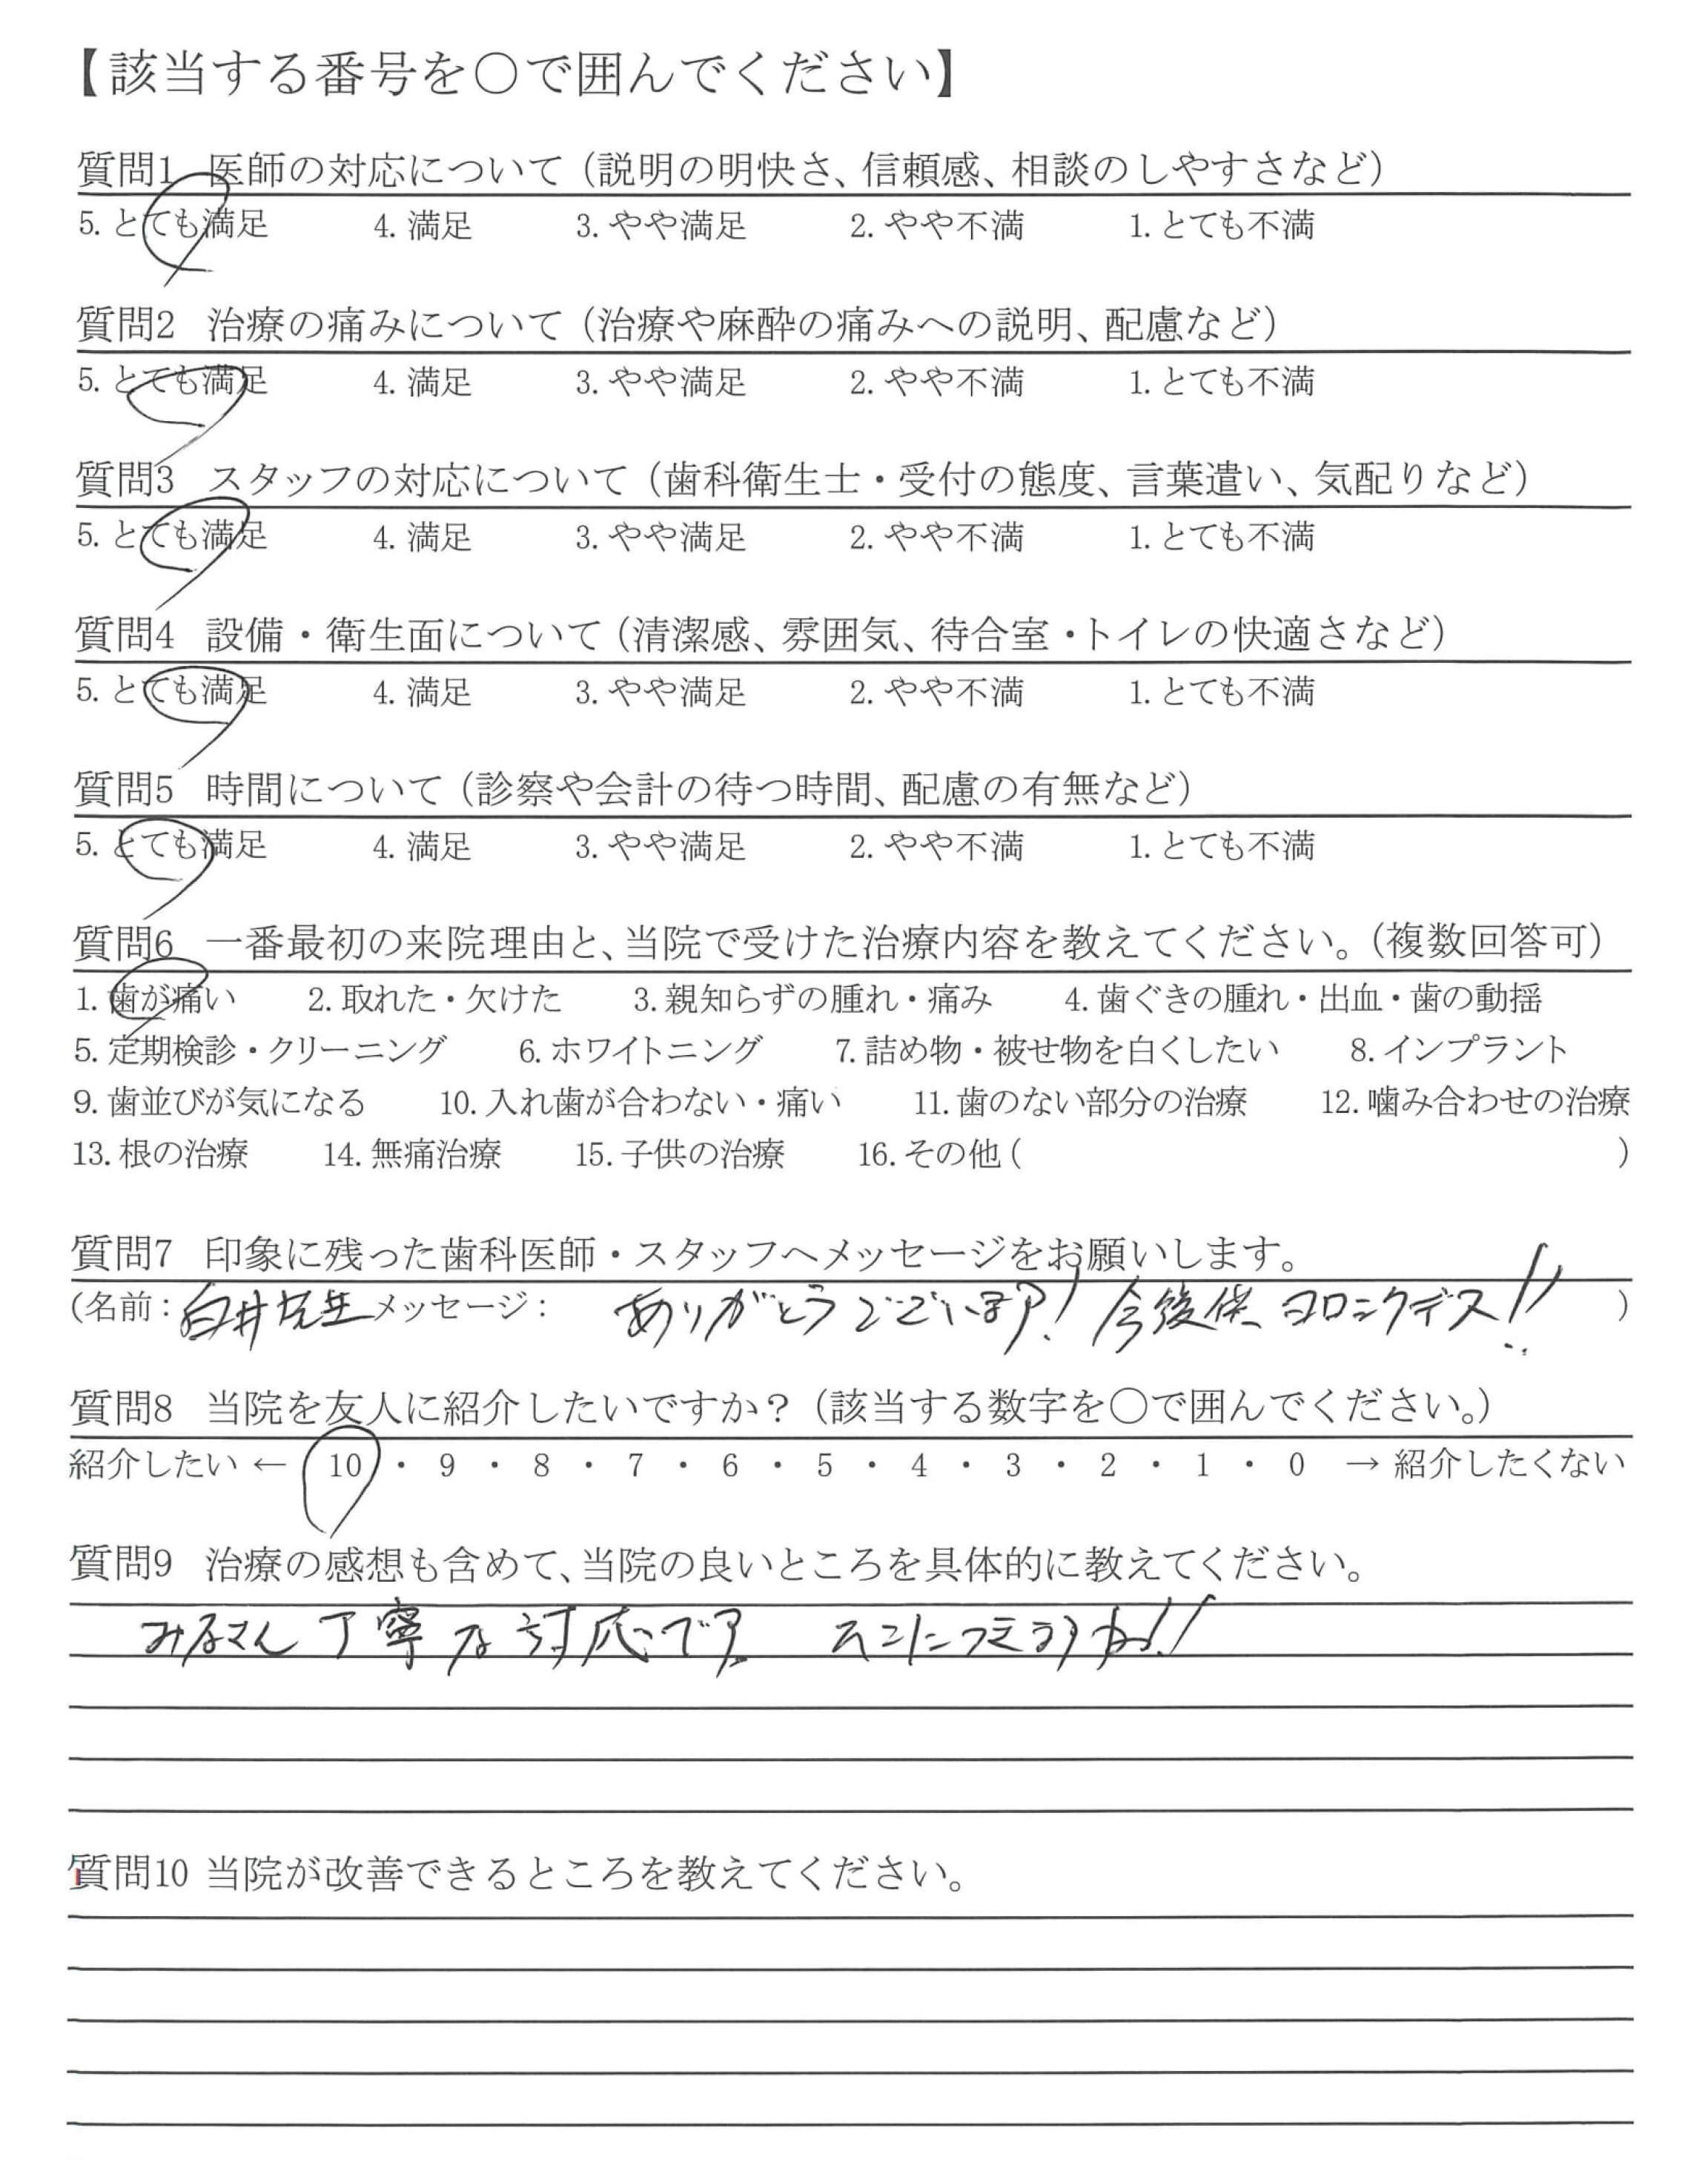 【該当する番号を〇で囲んでください】
質問1 医師の対応について（説明の明快さ、信頼感、相談のしやすさなど）
5. とても満足 4. 満足 3. やや満足 2. やや不満 1. とても不満
質問2 治療の痛みについて（治療や麻酔の痛みへの説明、配慮など）
5. とても満足 4. 満足 3. やや満足 2. やや不満 1. とても不満
質問3 スタッフの対応について（歯科衛生士・受付の態度、言葉遣い、気配りなど）
5. とても満足 4. 満足 3. やや満足 2. やや不満 1. とても不満
質問4 設備・衛生面について（清潔感、雰囲気、待合室・トイレの快適さなど）
5. とても満足 4. 満足 3. やや満足 2. やや不満 1. とても不満
質問5 時間について（診察や会計の待つ時間、配慮の有無など）
5. とても満足 4. 満足 3. やや満足 2. やや不満 1. とても不満
質問6 一番最初の来院理由と、当院で受けた治療内容を教えてください。（複数回答可）
1. 歯が痛い 2. 取れた・欠けた 3. 親知らずの腫れ・痛み 4. 歯ぐきの腫れ・出血・歯の動揺
5. 定期検診・クリーニング 6. ホワイトニング 7. 詰め物・被せ物を白くしたい 8. インプラント
9. 歯並びが気になる 10. 入れ歯が合わない・痛い 11. 歯のない部分の治療 12. 噛み合わせの治療
13. 根の治療 14. 無痛治療 15. 子供の治療 16. その他（ ）
質問7 印象に残った歯科医師・スタッフへメッセージをお願いします。
（名前：白井先生 メッセージ： ありがとうございます！ 今後供 ヨロシクデス!! ）
質問8 当院を友人に紹介したいですか？（該当する数字を〇で囲んでください。）
紹介したい ← 10 ・ 9 ・ 8 ・ 7 ・ 6 ・ 5 ・ 4 ・ 3 ・ 2 ・ 1 ・ 0 → 紹介したくない
質問9 治療の感想も含めて、当院の良いところを具体的に教えてください。
みなさん 丁寧な対応です。
質問10 当院が改善できるところを教えてください。